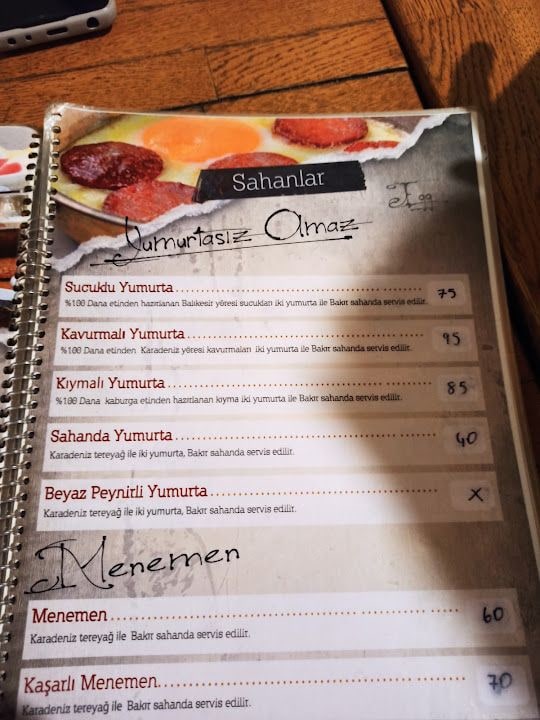 Sahanlar
Egg
Yumurtasız Olmaz
Sucuklu Yumurta 75
%100 Dana etinden hazırlanan Balıkesir yöresi sucukları iki yumurta ile Bakır sahanda servis edilir.
Kavurmalı Yumurta 95
%100 Dana etinden Karadeniz yöresi kavurmaları iki yumurta ile Bakır sahanda servis edilir.
Kıymalı Yumurta 85
%100 Dana kaburga etinden hazırlanan kıyma iki yumurta ile Bakır sahanda servis edilir.
Sahanda Yumurta 40
Karadeniz tereyağ ile iki yumurta, Bakır sahanda servis edilir.
Beyaz Peynirli Yumurta X
Karadeniz tereyağ ile iki yumurta, Bakır sahanda servis edilir.
Menemen
Menemen 60
Karadeniz tereyağ ile Bakır sahanda servis edilir.
Kaşarlı Menemen 70
Karadeniz tereyağ ile Bakır sahanda servis edilir.